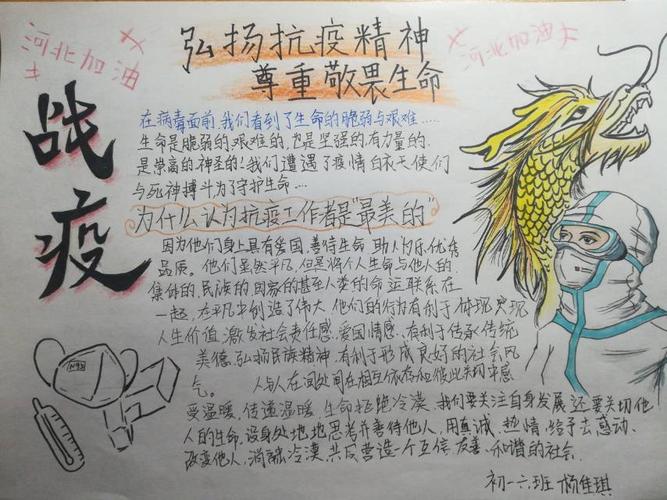 河北加油
弘扬抗疫精神
河北加油
尊重敬畏生命
战疫
在病毒面前,我们看到了生命的脆弱与艰难……
生命是脆弱的艰难的,也是坚强的有力量的,
是崇高的神圣的!我们遭遇了疫情白衣天使们
与死神搏斗为了守护生命…
为什么认为抗疫工作者是"最美的"
因为他们身上具有爱国,善待生命,助人为乐,优秀
品质。他们虽然平凡,但是将个人生命与他人的,
集体的,民族的国家的甚至人类的命运联系在
一起,在平凡中创造了伟大,他们的行为有利于体现实现
人生价值,激发社会责任感,爱国情感,有利于传承传统
美德,弘扬民族精神,有利于形成良好的社会风
气。人与人在间处同在相互依存和彼此关切中感
受温暖,传递温暖,生命拒绝冷漠,我们要关注自身发展还要关切他
人的生命,设身处地地思考并善待他人,用真诚、热情,给予去感动、
改变他人,消融冷漠,共同营造一个互信、友善、和谐的社会.
N95
初一六班 杨佳琪